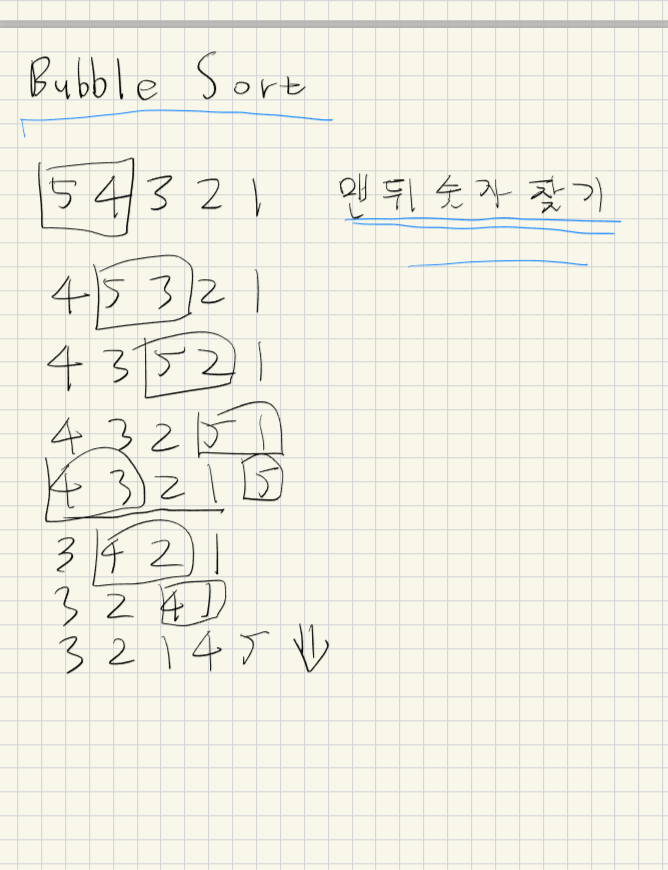 Bubble Sort
5 4 3 2 1 맨 뒤 숫자 찾기
4 5 3 2 1
4 3 5 2 1
4 3 2 5 1
4 3 2 1 5
3 4 2 1
3 2 4 1
3 2 1 4 5